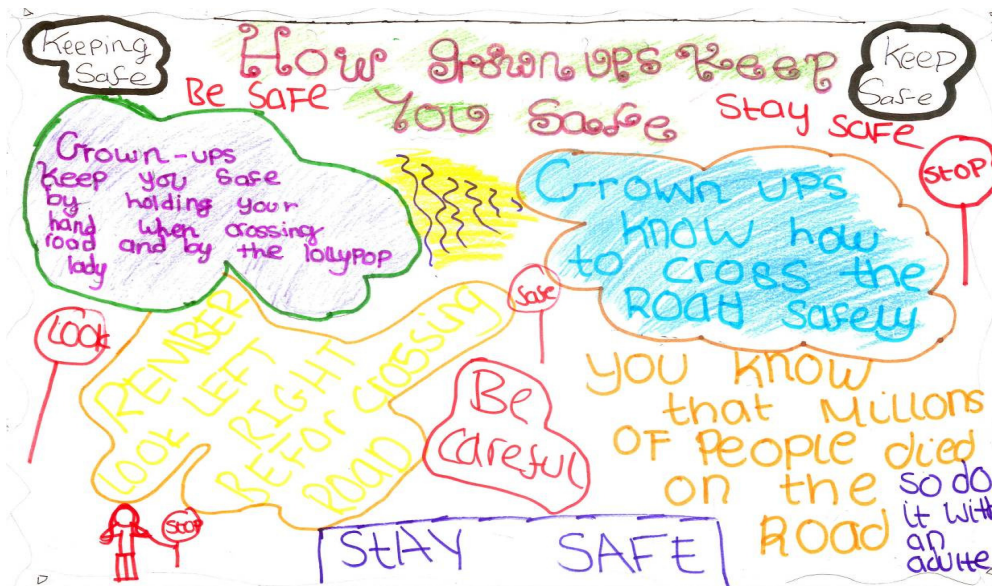 Keeping
Safe
How grown ups Keep
You Safe
Keep
Safe
Be Safe
Stay Safe
Grown-ups
keep you safe
by holding your
hand when crossing
road and by the lollypop
lady
Grown ups
know how
to cross the
ROAD safely
STOP
Safe
LOOK
REMEMBER
LOOK LEFT
RIGHT
BEFOR CROSSING
ROAD
Be
careful
you know
that Millons
OF People died
on the
ROAD
so do
it with
an
adulte
STOP
STAY SAFE